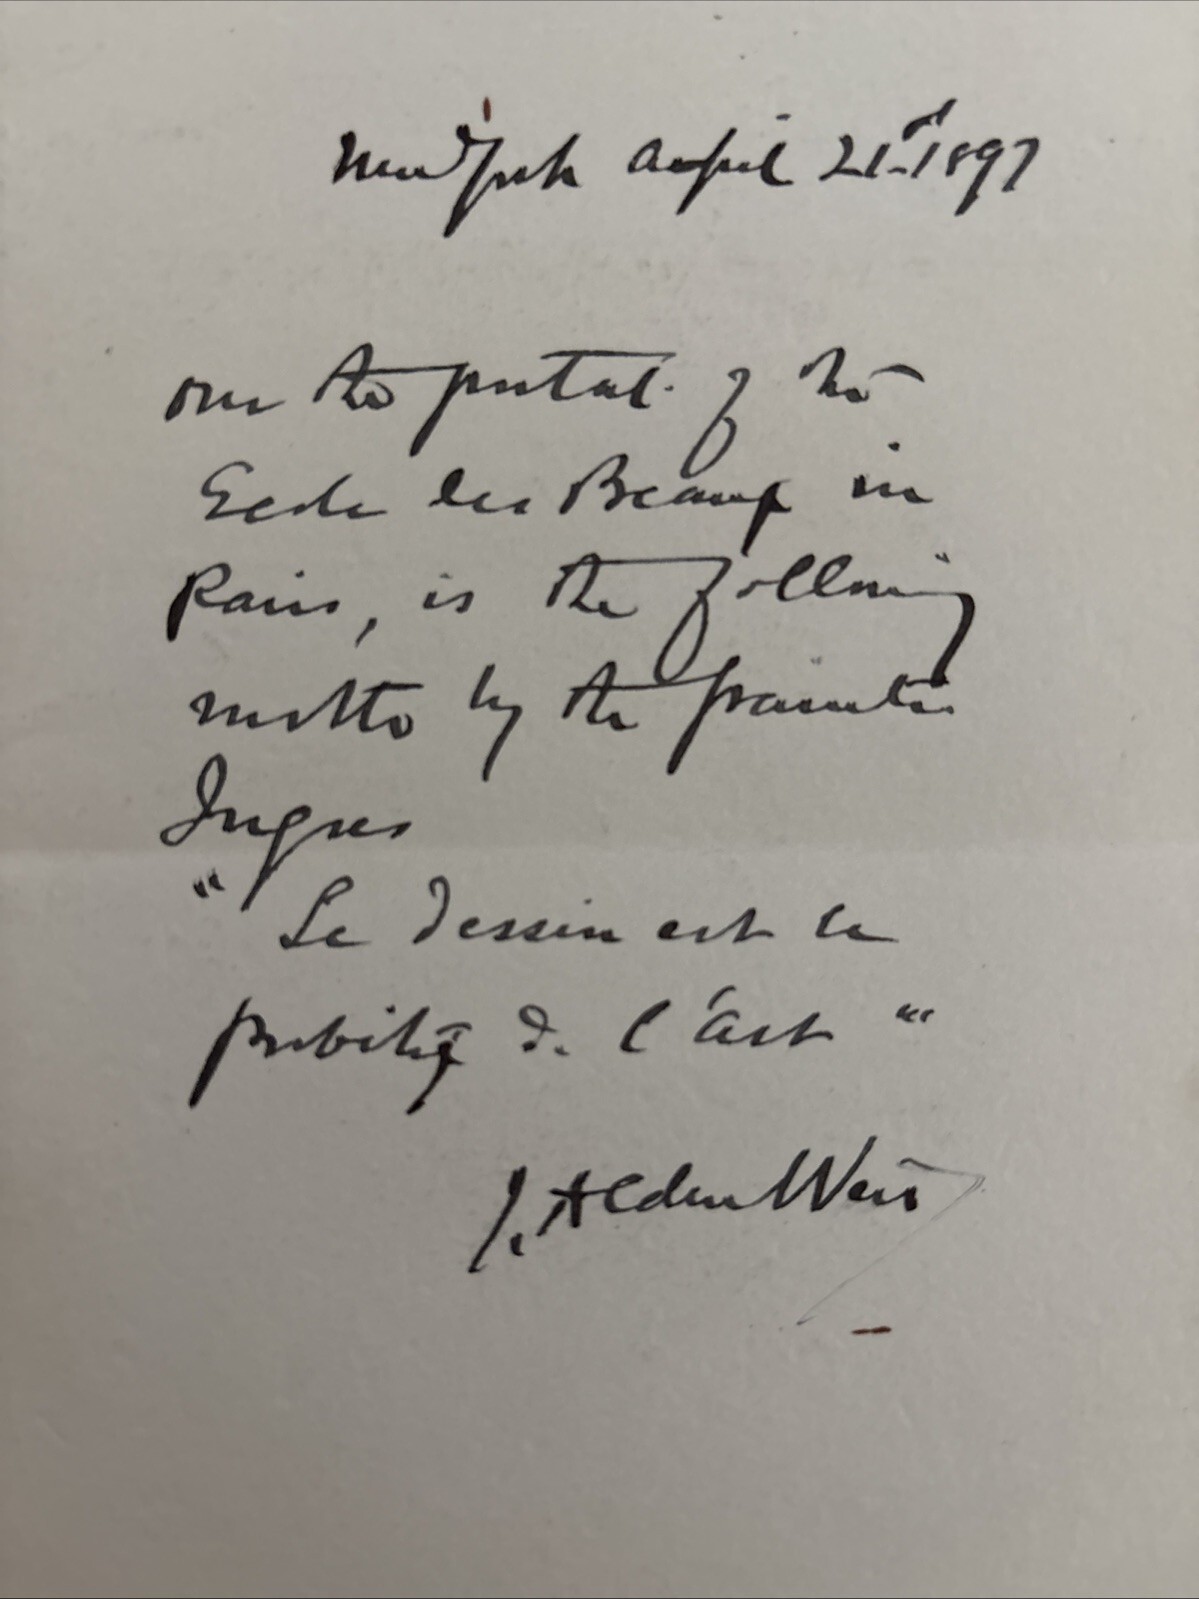 New York April 21st 1897
Over the portal of the
Ecole des Beaux in
Paris, is the following
motto by the painter
Ingres
"Le dessin est la
probité de l'art"
J. Alden Weir